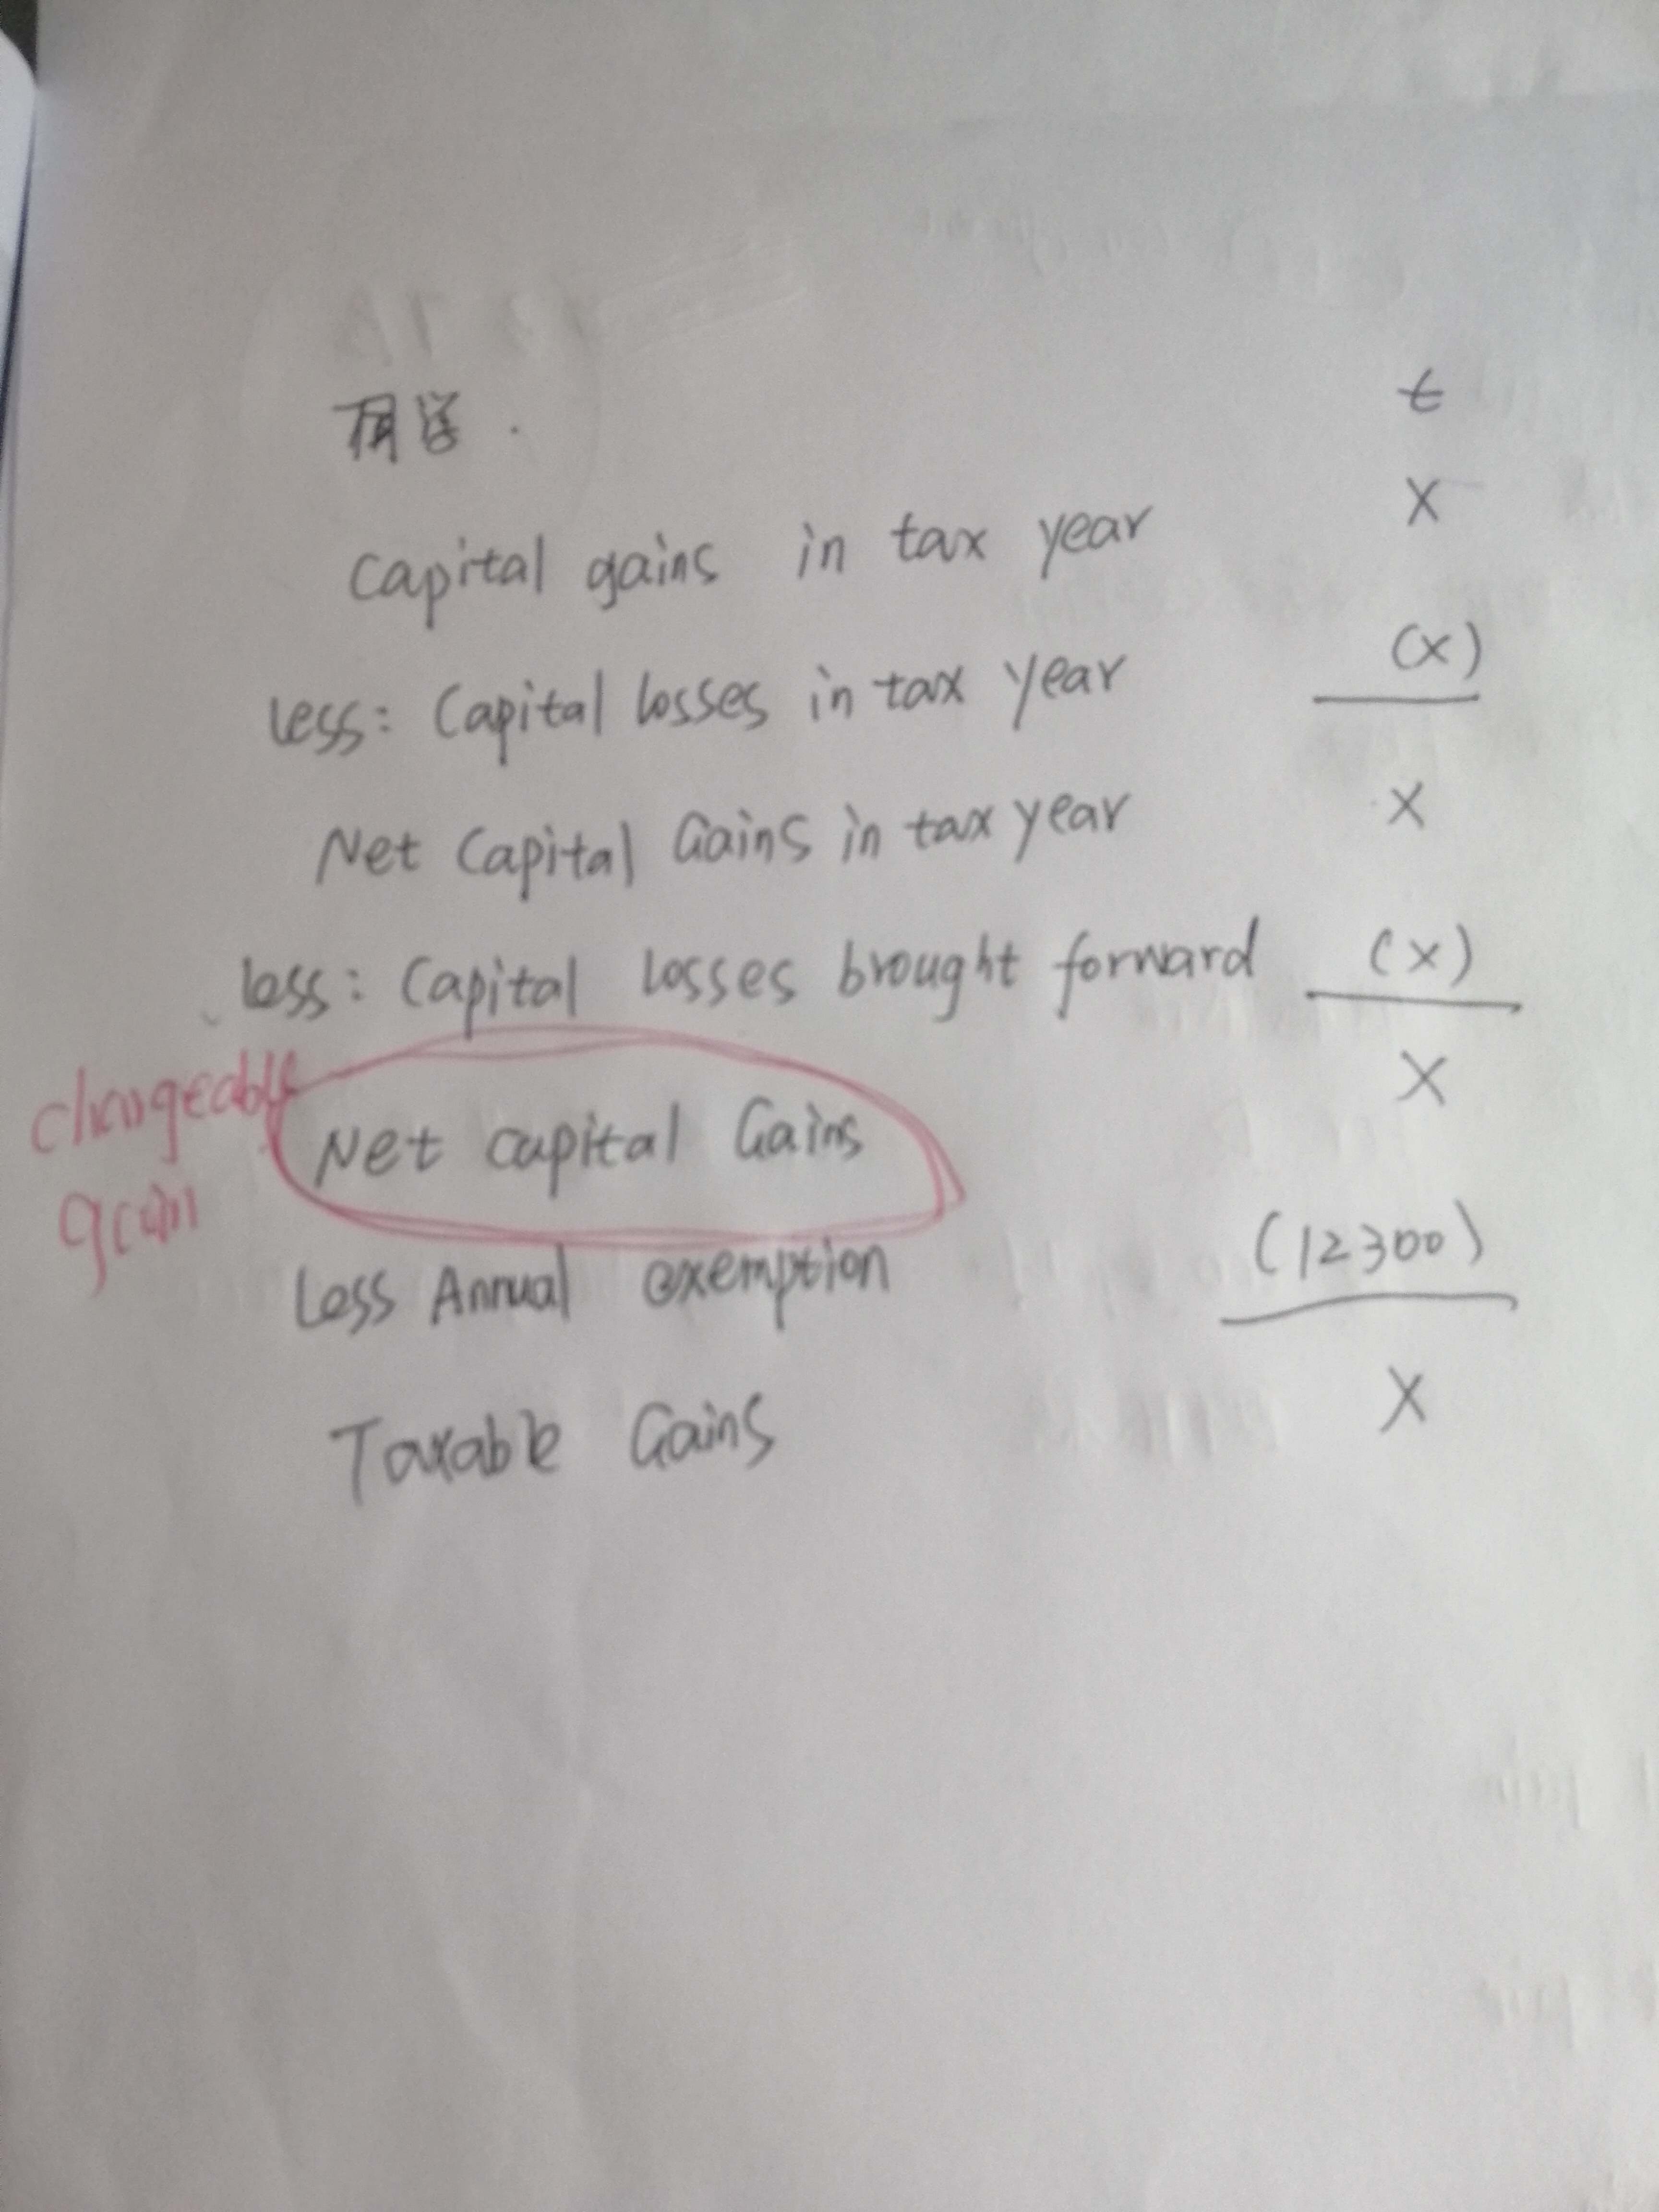 £
Capital gains in tax year X
Less: Capital losses in tax year (X)
Net Capital Gains in tax year X
less: Capital losses brought forward (X)
chargeable gain
Net capital Gains X
Less Annual exemption (12300)
Taxable Gains X